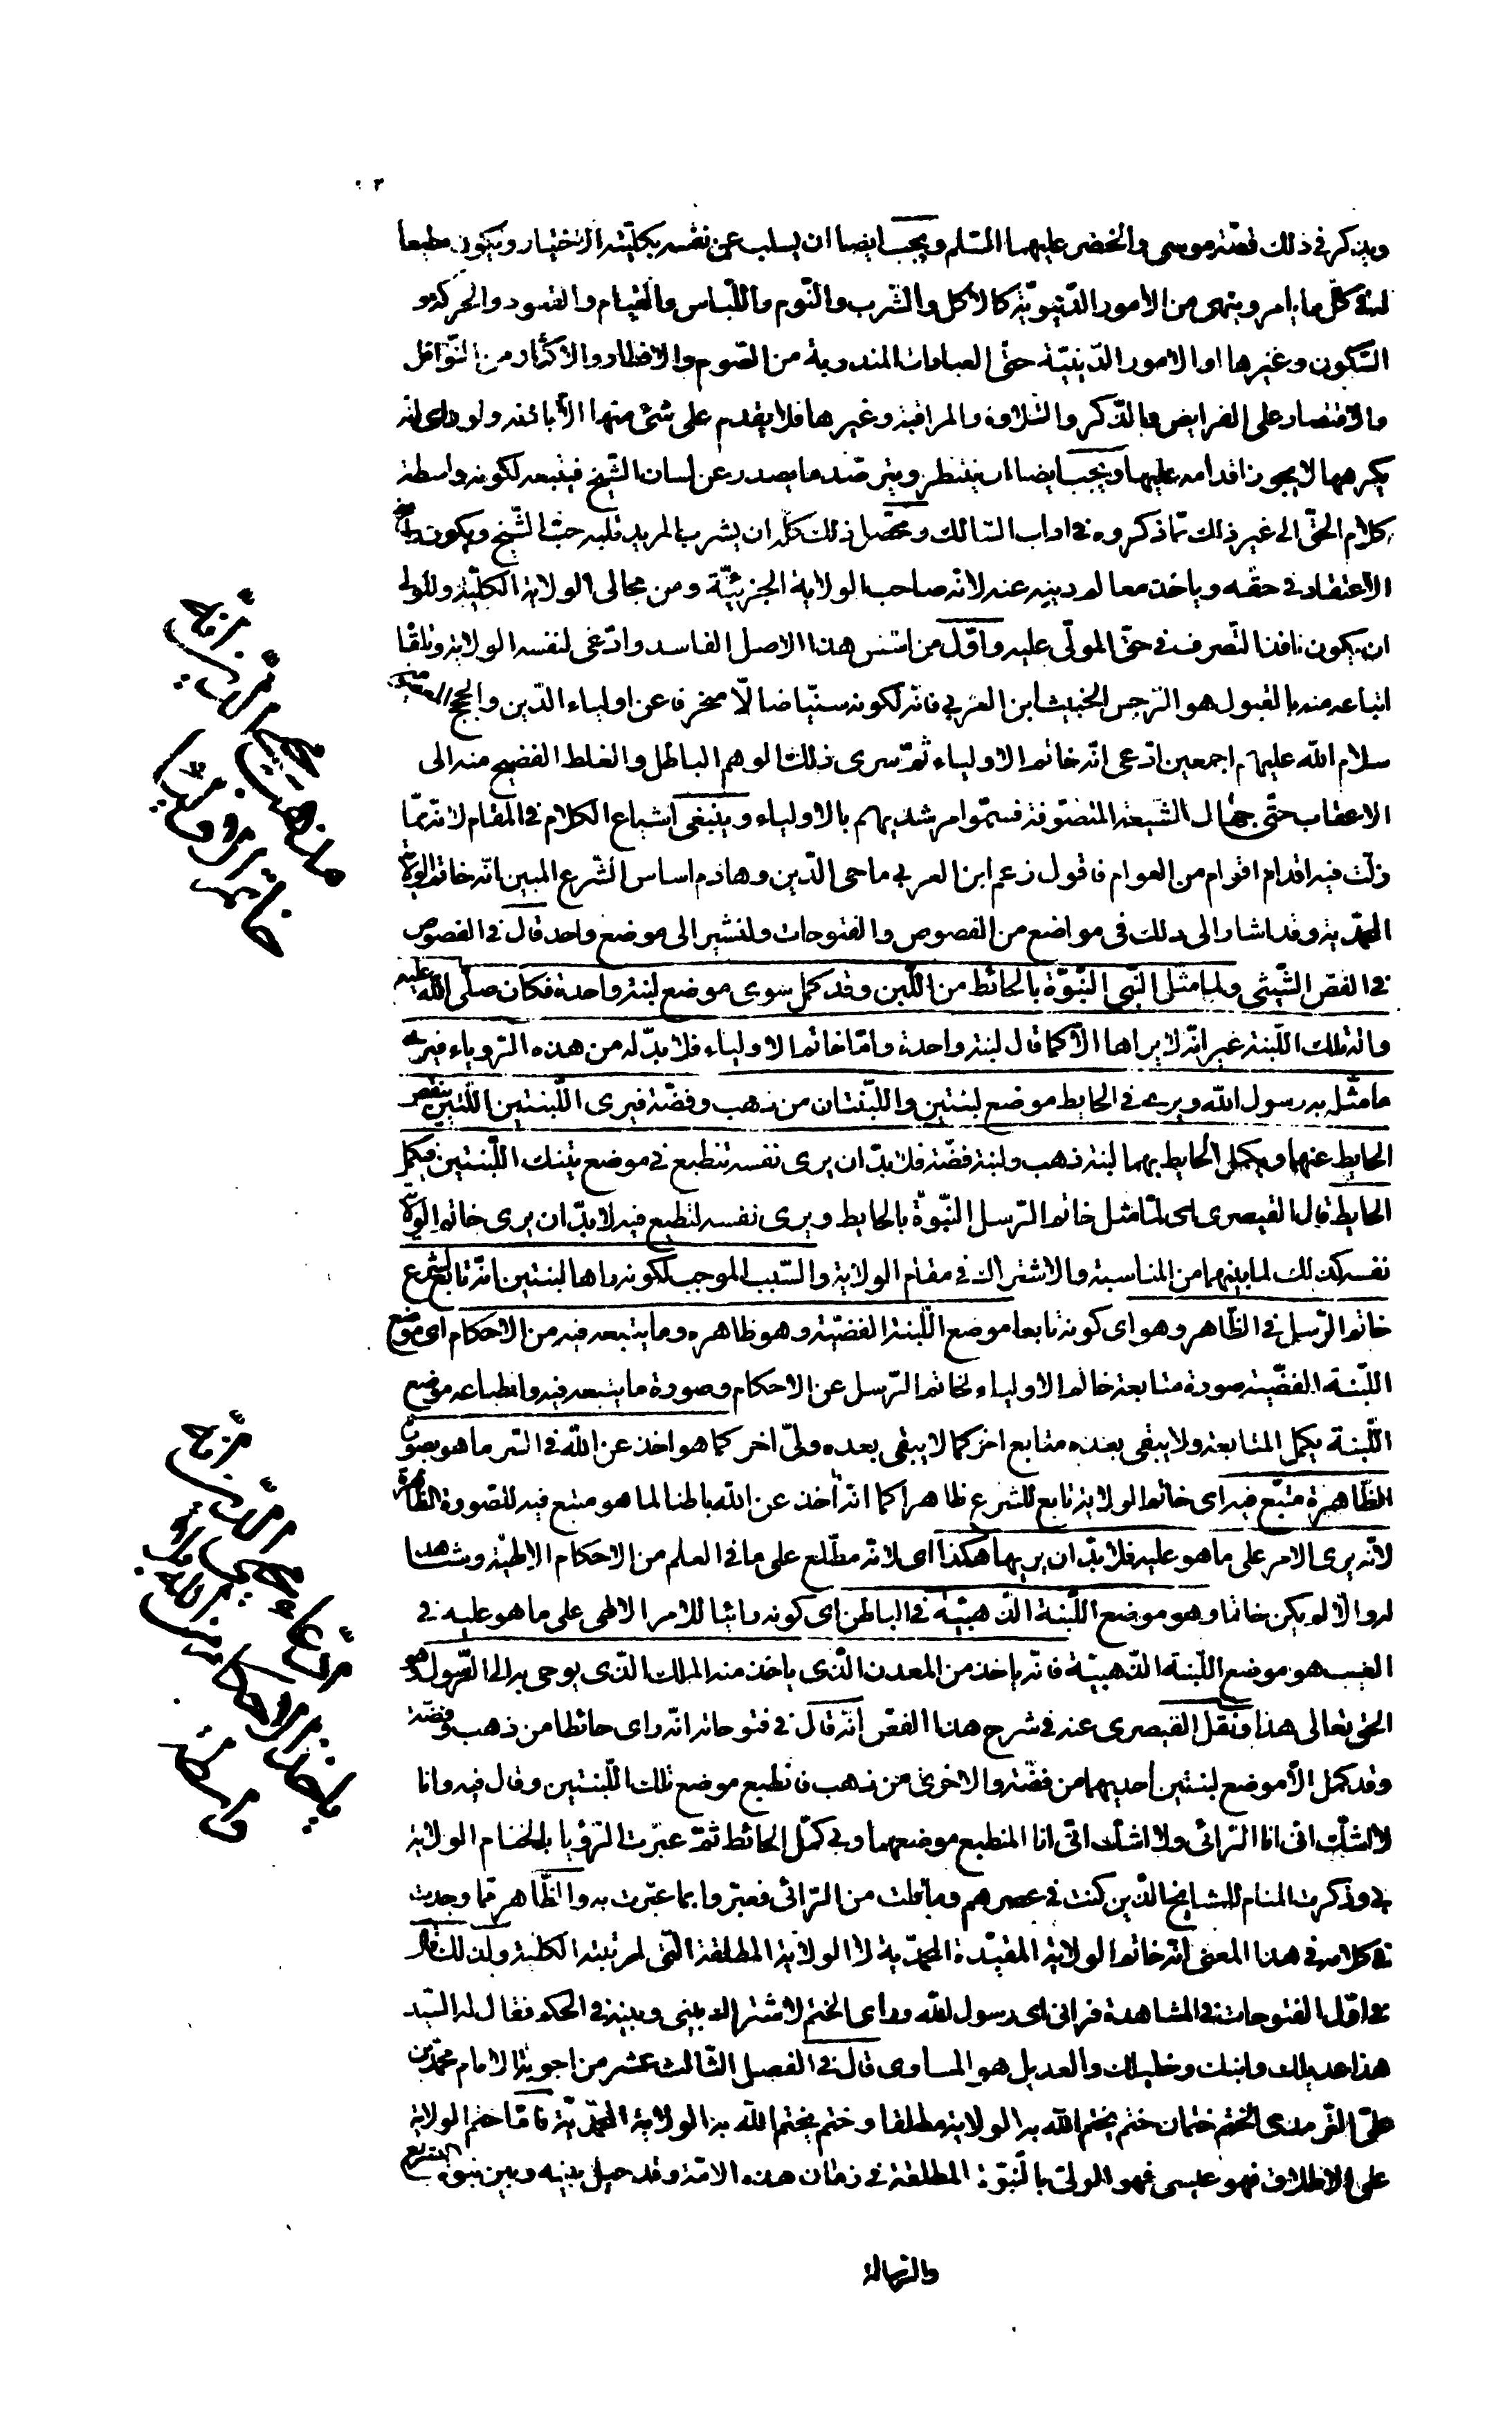 ويذكر في ذلك قصّة موسى والخضر عليهما السّلم ويجب ايضا ان يسلب عن نفسه بكليّته الاختيار ويكون مطيعا
له في كلّ ما يامر وينهى من الامور الدّنيويّة كالاكل والشّرب والنّوم واللّباس والقيام والقعود والحركة و
السّكون وغيرها او الامور الدّينيّة حتّى العبادات المندوبة من الصّوم والافطار والاكثار من النّوافل
والاقتصار على الفرايض والذّكر والتّلاوة والمراقبة وغيرها فلا يقدم على شئ منها الّا باذنه ولو راى انه
يكرهها لا يجوز اقدامه عليها ويجب ايضا ان ينتظر ويترصّد ما يصدر عن لسان الشّيخ فيتبعه لكونه واسطة
كلام الحقّ الى غير ذلك ممّا ذكروه في اداب السّالك ومحصّل ذلك كلّه ان يشرب المريد قلبه حبّ الشّيخ ويكون
الاعتقاد في حقّه وياخذ معالم دينه عنه لانّه صاحب الولاية الجزئيّة ومن مجالي الولاية الكليّة وللولي
ان يكون نافذ التّصرف في حقّ المولّى عليه واوّل من اسّس هذا الاصل الفاسد وادّعى لنفسه الولاية وتلقّا
اتباعه منه بالقبول هو الرّجس الخبيث ابن العربي فانّه لكونه سنيّا ضالّا منحرفا عن اولياء الدّين والحجج
سلام اللّه عليهم اجمعين ادّعى انّه خاتم الاولياء ثمّ سرى ذلك الوهم الباطل والغلط الفضيح منه الى
الاعقاب حتّى جهّال الشّيعة المتصوّفة فسمّوا مرشديهم بالاولياء وينبغي اشباع الكلام في المقام لانّه ممّا
زلّت فيه اقدام اقوام من العوام فاقول زعم ابن العربي ماحي الدّين وهادم اساس الشّرع المبين انّه خاتم الولاية
المحمّديّة وقد اشار الى ذلك في مواضع من الفصوص والفتوحات ولنشير الى موضع واحد قال في الفصوص
في الفصّ الشّيثي ولما مثّل النّبي النّبوّة بالحائط من اللّبن وقد كمل سوى موضع لبنة واحدة فكان صلّى اللّه عليه
واله تلك اللّبنة غير انّه لا يراها الّا كما قال لبنة واحدة وامّا خاتم الاولياء فلا بدّ له من هذه الرّوياء فيرى
ما مثّله به رسول اللّه ويرى في الحايط موضع لبنتين واللّبنتان من ذهب وفضّة فيرى اللّبنتين اللّتين ينقص
الحايط عنهما ويكمل الحايط بهما لبنة ذهب ولبنة فضّة فلا بدّ ان يرى نفسه تنطبع في موضع تينك اللّبنتين فيكمل
الحايط قال القيصري اى لمّا مثل خاتم الرّسل النّبوّة بالحايط ويرى نفسه تنطبع فيه لا بدّ ان يرى خاتم الولاية
نفسه كذلك لما بينهما من المناسبة والاشتراك في مقام الولاية والسّبب الموجب لكونه راها لبنتين انّه تابع لشرع
خاتم الرّسل في الظّاهر وهو اى كونه تابعا موضع اللّبنة الفضّيّة وهو ظاهره وما يتبعه فيه من الاحكام اى موضع
اللّبنة الفضّية صورة متابعة خاتم الاولياء لخاتم الرّسل عن الاحكام وصورة ما يتبعه فيه وانطباعه موضع
اللّبنة يكمل المتابعة ولا يبقى بعده متابع اخر كما لا يبقى بعده وليّ اخر كما هو اخذ عن اللّه في السّر ما هو بصورة
الظّاهرة متبّع فيه اى خاتم الولاية تابع للشرع ظاهرا كما انّه اخذ عن اللّه باطنا لما هو متبع فيه للصّورة الظّاهرة
لانّه يرى الامر على ما هو عليه فلا بدّ ان يريها هكذا اى لانّه مطّلع على ما في العلم من الاحكام الالهيّة وشاهدها
له والّا لم يكن خاتما وهو موضع اللّبنة الذّهبيّة في الباطن اى كونه رائيا للامر الالهي على ما هو عليه في
الغيب هو موضع اللّبنة الذّهبيّة فانّه ياخذ من المعدن الّذى ياخذ منه الملك الّذى يوحى به الى الرّسول هو
الحقّ تعالى هذا ونقل القيصرى عنه في شرح هذا الفصّ انّه قال في فتوحاته انّه راى حائطا من ذهب وفضّة
وقد كمل الّا موضع لبنتين احديهما من فضّة والاخرى من ذهب فانطبع موضع تلك اللّبنتين وقال فيه وانا
لا اشكّ انى انا الرّائى ولا اشك انّى انا المنطبع موضعهما وبى كمّل الحائط ثمّ عبّرت الرّؤيا بالختام الولاية
بى وذكرت المنام للمشايخ الّذين كنت في عصرهم وما قلت من الرّائى فعبّروا بما عبّرت به والظّاهر ممّا وجدت
في كلامه في هذا المعنى انّه خاتم الولاية المقيّدة المحمّديّة لا الولاية المطلقة الّتى لمرتبته الكليّة ولذلك قال
في اوّل الفتوحات في المشاهدة فرانى اى رسول اللّه وراى الختم لاشتراك بينى وبينه في الحكم فقال له السّيد
هذا عديلك وابنك وخليلك والعديل هو المساوى قال في الفصل الثّالث عشر من اجوبة الامام محمّد بن
علىّ التّرمذى الختم ختمان ختم يختم اللّه به الولاية مطلقا وختم يختم اللّه به الولاية المحمّديّة فامّا ختم الولاية
على الاطلاق فهو عيسى فهو الولىّ بالنّبوّة المطلقة في زمان هذه الامّة وقد حيل بينه وبين نبوّة التشريع
والرّسالة